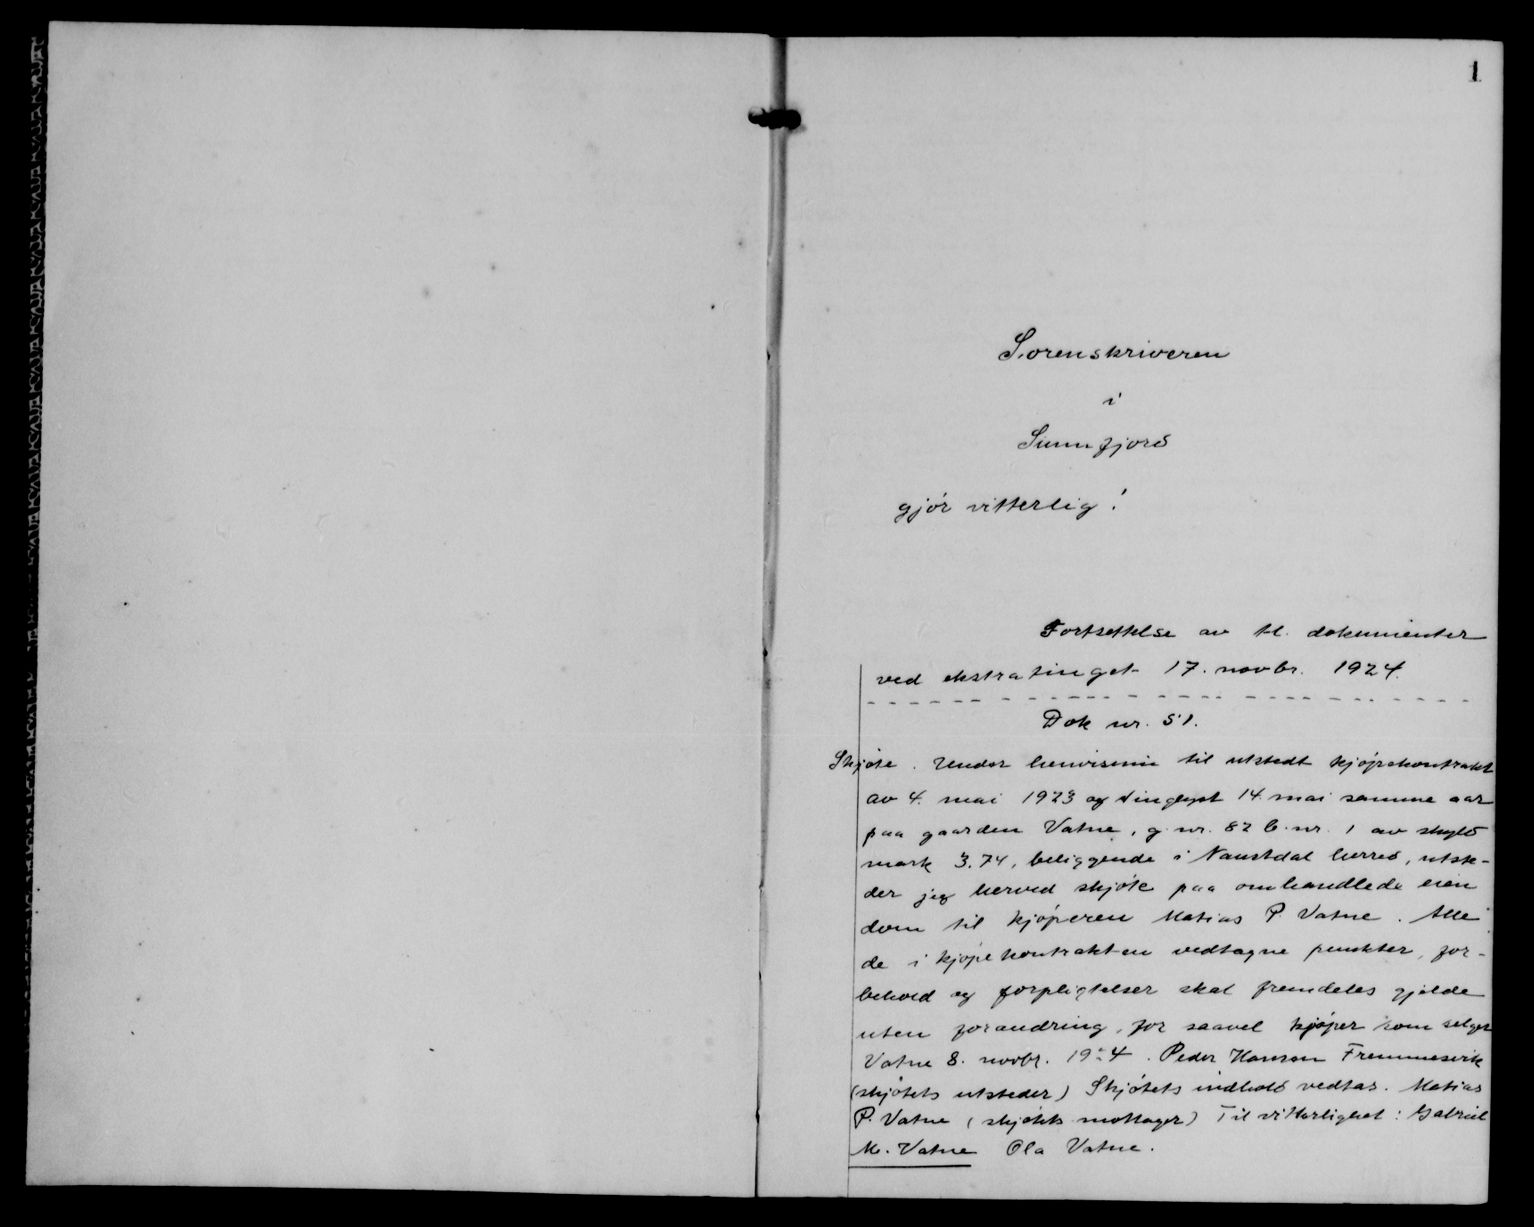 1
Sorenskriveren
i
Sunnfjord
gjör vitterlig!
Fortsettelse av tl. dokumenter
ved ekstratinget 17. novbr. 1924.
Dok nr. 51.
Skjöte. Under henvisning til utstedt kjöpekontrakt
av 4. mai 1923 og tinglyst 14. mai samme aar
paa gaarden Vatne, g. nr. 82 b. nr. 1 av skyld
mark 3.74, beliggende i Naustdal herred, utste-
der jeg herved skjöte paa omhandlede eien
dom til kjöperen Matias P. Vatne. Alle
de i kjöpekontrakten vedtagne punkter, for-
behold og forpligtelser skal fremdeles gjelde
uten forandring, for saavel kjöper som selger
Vatne 8. novbr. 1924. Peder Hansen
(skjötets utsteder) Skjötets indhold vedtas. Matias
P. Vatne (skjötets mottager) Til vitterlighet: Gabriel
M. Vatne Ola Vatne.